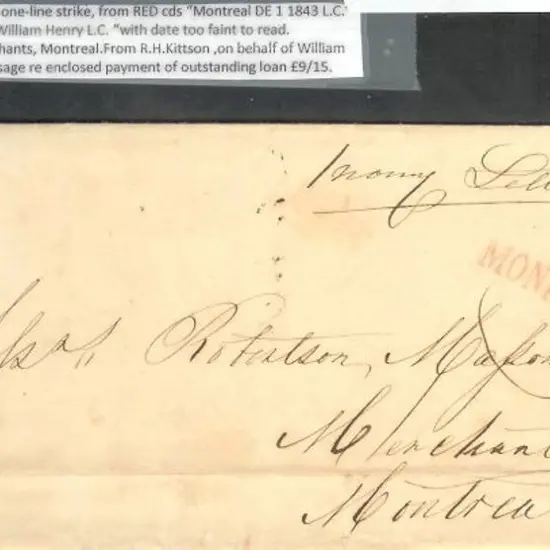 one-line strike, from RED cds "Montreal DE 1 1843 L.C.'
William Henry L.C. "with date too faint to read.
hants, Montreal.From R.H.Kittson ,on behalf of William
sage re enclosed payment of outstanding loan £9/15.
Money
MON
Robertson, Masson
Merchan
Montrea